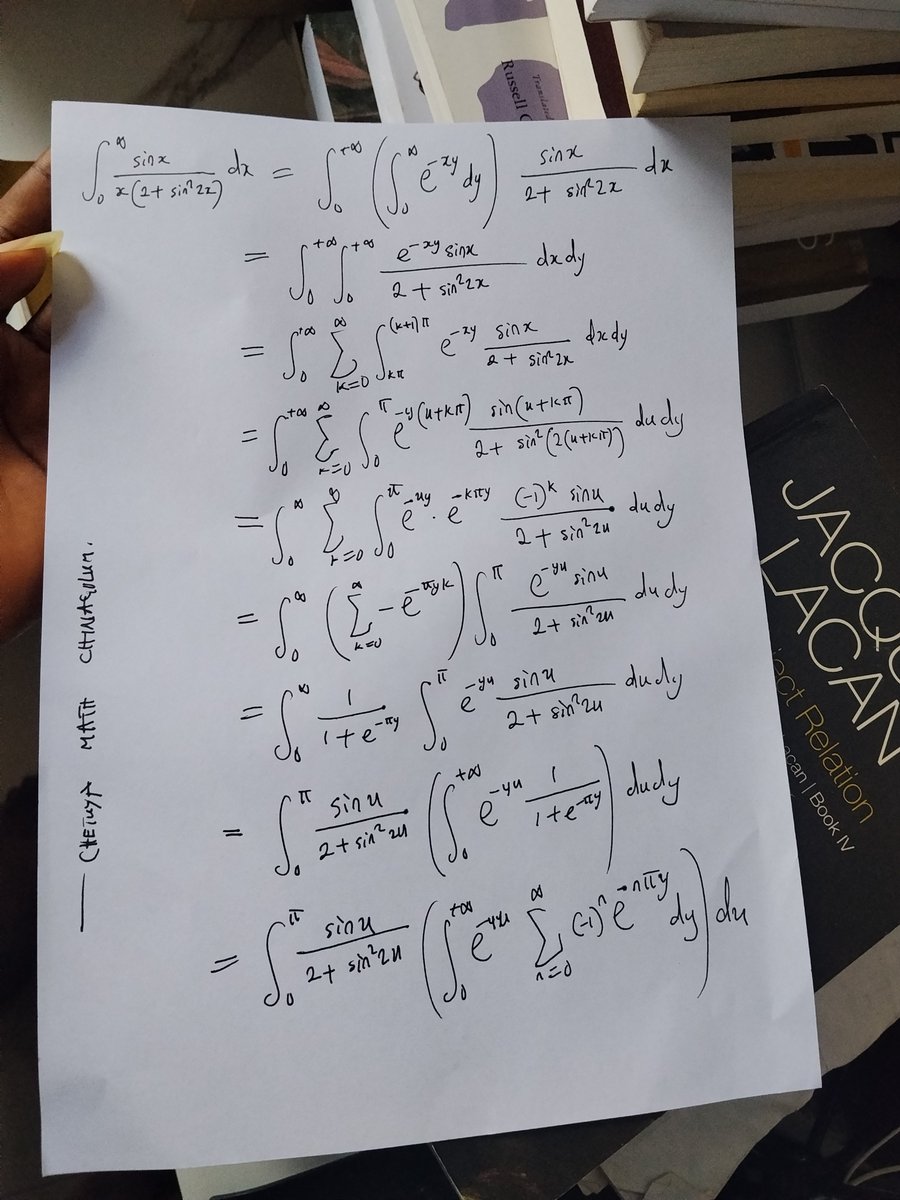 Translated
Russell G
∫₀^∞ sinx / x(2+ sin²2x) dx = ∫₀^+∞ (∫₀^∞ e^-xy dy) sinx / 2+ sin²2x dx
= ∫₀^+∞ ∫₀^+∞ e^-xy sinx / 2 + sin²2x dxdy
= ∫₀^+∞ ∑_k=0^∞ ∫_kπ^(k+1)π e^-xy sinx / 2+ sin²2x dxdy
= ∫₀^+∞ ∑_k=0^∞ ∫₀^π e^-y(u+kπ) sin(u+kπ) / 2+ sin²(2(u+kπ)) dudy
= ∫₀^∞ ∑_k=0^∞ ∫₀^π e^-uy · e^-kπy (-1)^k sinu / 2+ sin²2u dudy
= ∫₀^∞ (∑_k=0^∞ - e^-πyk) ∫₀^π e^-yu sinu / 2+ sin²2u dudy
= ∫₀^∞ 1 / 1+e^-πy ∫₀^π e^-yu sinu / 2+ sin²2u dudy
= ∫₀^π sinu / 2+ sin²2u (∫₀^+∞ e^-yu 1 / 1+e^-πy) dudy
= ∫₀^π sinu / 2+ sin²2u (∫₀^+∞ e^-yu ∑_n=0^∞ (-1)^n e^-nπy dy) du
MATH
JACQU
LACAN
ject Relation
acan | Book IV